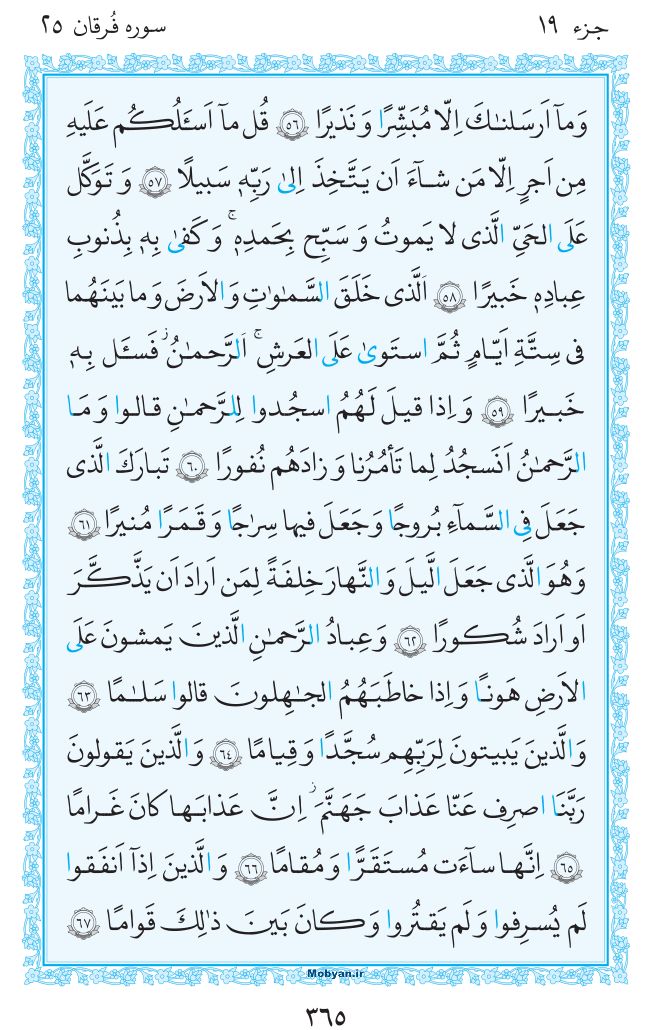 جزء ١٩
سوره فُرقان ٢٥
وَمآ اَرسَلنٰكَ اِلّا مُبَشِّرًا وَ نَذيرًا ﴿٥٦﴾ قُل مآ اَسـَٔلُكُم عَلَيهِ
مِن اَجرٍ اِلّا مَن شآءَ اَن يَتَّخِذَ اِلىٰ رَبِّهٖ سَبيلًا ﴿٥٧﴾ وَ تَوَكَّل
عَلَى الحَىِّ الَّذى لا يَموتُ وَ سَبِّح بِحَمدِهٖ ۚ وَ كَفىٰ بِهٖ بِذُنوبِ
عِبادِهٖ خَبيرًا ﴿٥٨﴾ اَلَّذى خَلَقَ السَّمٰوٰتِ وَالاَرضَ وَما بَينَهُما
فى سِتَّةِ اَيّامٍ ثُمَّ استَوىٰ عَلَى العَرشِ ۚ اَلرَّحمٰنُ ۖ فَسـَٔل بِهٖ
خَبيرًا ﴿٥٩﴾ وَ اِذا قيلَ لَهُمُ اسجُدوا لِلرَّحمٰنِ قالوا وَ مَا
الرَّحمٰنُ اَنَسجُدُ لِما تَأمُرُنا وَ زادَهُم نُفورًا ﴿٦٠﴾ تَبارَكَ الَّذى
جَعَلَ فِى السَّمآءِ بُروجًا وَ جَعَلَ فيها سِرٰجًا وَ قَمَرًا مُنيرًا ﴿٦١﴾
وَ هُوَ الَّذى جَعَلَ الَّيلَ وَ النَّهارَ خِلفَةً لِمَن اَرادَ اَن يَذَّكَّرَ
اَو اَرادَ شُكورًا ﴿٦٢﴾ وَ عِبادُ الرَّحمٰنِ الَّذينَ يَمشونَ عَلَى
الاَرضِ هَونًا وَ اِذا خاطَبَهُمُ الجٰهِلونَ قالوا سَلٰمًا ﴿٦٣﴾
وَ الَّذينَ يَبيتونَ لِرَبِّهِم سُجَّدًا وَ قِيامًا ﴿٦٤﴾ وَ الَّذينَ يَقولونَ
رَبَّنَا اصرِف عَنّا عَذابَ جَهَنَّمَ ۖ اِنَّ عَذابَها كانَ غَرامًا
﴿٦٥﴾ اِنَّها سآءَت مُستَقَرًّا وَ مُقامًا ﴿٦٦﴾ وَ الَّذينَ اِذآ اَنفَقوا
لَم يُسرِفوا وَ لَم يَقتُروا وَ كانَ بَينَ ذٰلِكَ قَوامًا ﴿٦٧﴾
Mobyan.ir
٣٦٥